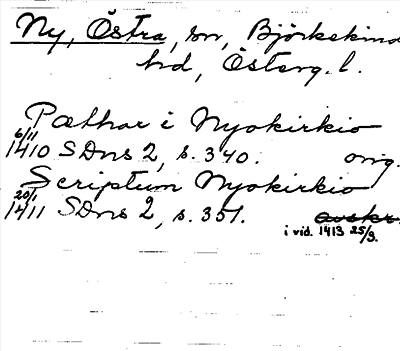 Ny, Östra, sn, Björkekind
hd, Österg. l.
Pæthar i Nyokirkio
6/11 1410 SDns 2, s. 340. orig.
Scriptum Nyokirkio
20/1 1411 SDns 2, s. 351. avskr.
i vid. 1413 25/9.